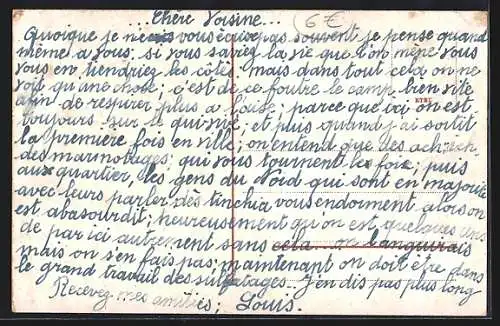 ...Chère Voisine...
6 €
Quoique je ne vous écris pas souvent je pense quand
même a vous. si vous saviez la vie que l'on mène vous
vous en tiendriez les côtes, mais dans tout cela on ne
voit qu'une chose; c'est de ce foutre le camp bien vite
afin de respirer plus a l'aise; parce que ici on est
toujours sur le qui-vive; et puis quand j'ai sortit
la première fois en ville; on entend que des
des marmotages; qui vous tournent le foie; puis
aux quartier, les gens du Nord qui sont en majorité
avec leurs parler des tinchia vous endorment alors on
est abasourdit; heureusement qu'on est quelques uns
de par ici autrement sans cela on languirais
mais on s'en fais pas; maintenant on doit être dans
le grand travail des sulfatages... J'en dis pas plus long
Recevez mes amitiés; Louis.